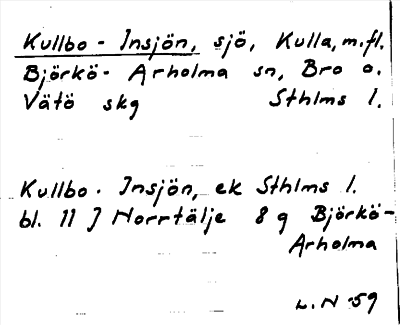 Kullbo - Insjön, sjö, Kulla, m.fl.
Björkö - Arholma sn, Bro o.
Vätö skg Sthlms l.
Kullbo - Insjön, ek Sthlms l.
bl. 11 J Norrtälje 8 g Björkö-
Arholma
L. N 59